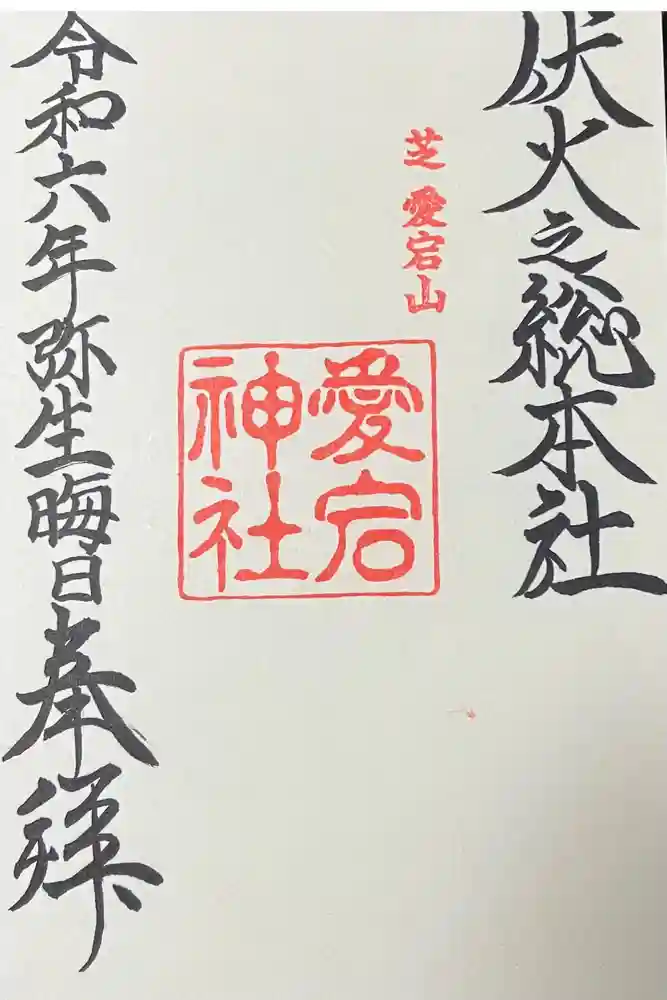 伏火之総本社
芝 愛宕山
愛宕
神社
令和六年弥生晦日奉拝